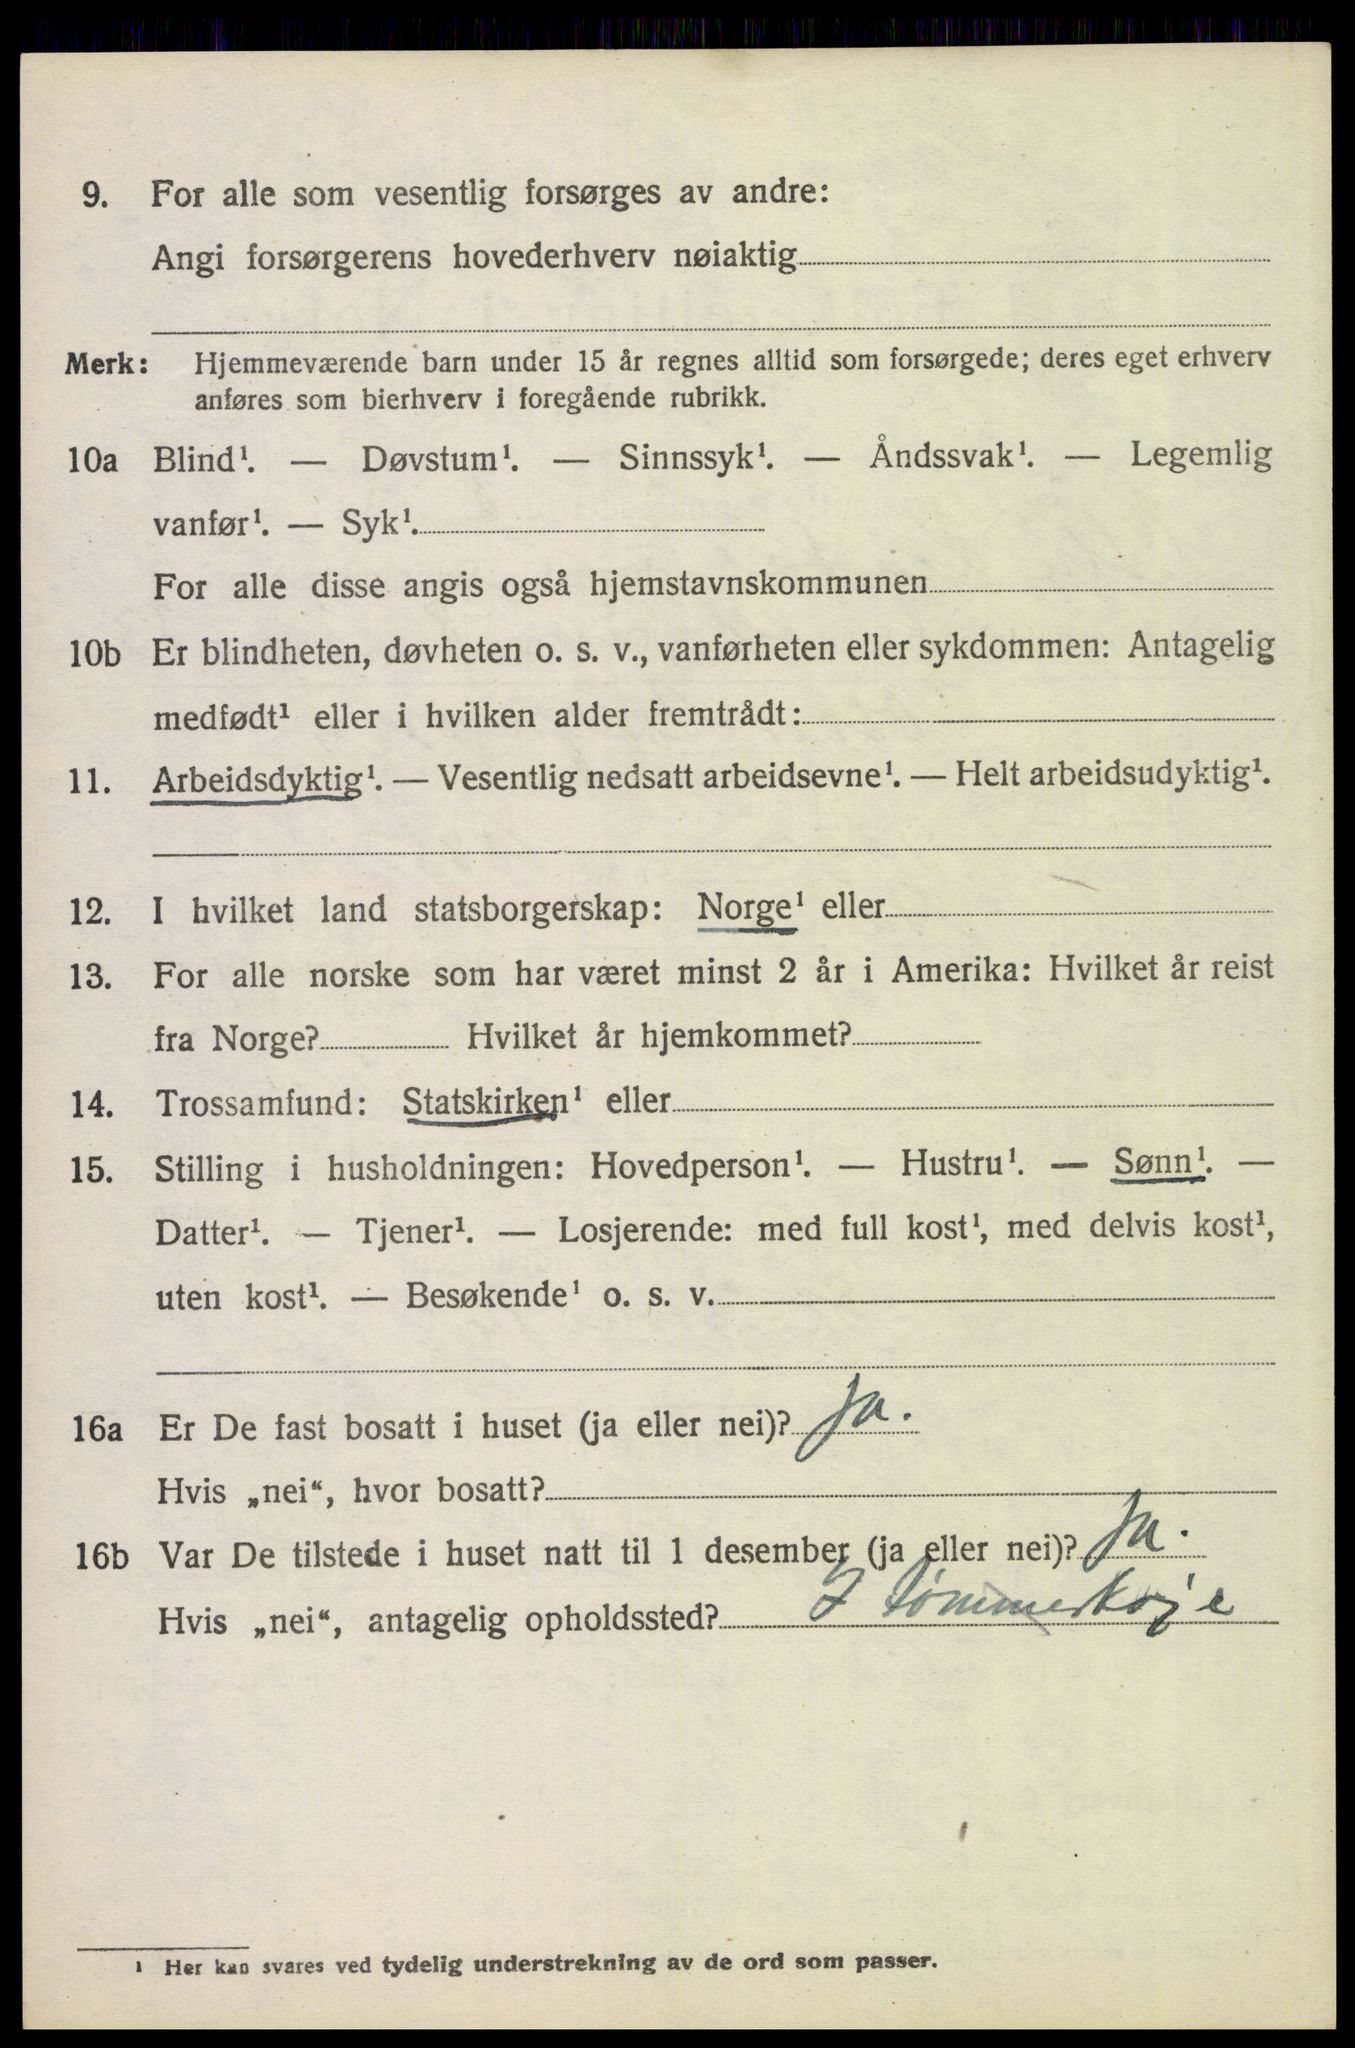 9. For alle som vesentlig forsørges av andre:
Angi forsørgerens hovederhverv nøiaktig
Merk: Hjemmeværende barn under 15 år regnes alltid som forsørgede; deres eget erhverv
anføres som bierhverv i foregående rubrikk.
10a Blind¹. — Døvstum¹. — Sinnssyk¹. — Åndssvak¹. — Legemlig
vanfør¹. — Syk¹.
For alle disse angis også hjemstavnskommunen
10b Er blindheten, døvheten o. s. v., vanførheten eller sykdommen: Antagelig
medfødt¹ eller i hvilken alder fremtrådt:
11. Arbeidsdyktig¹. — Vesentlig nedsatt arbeidsevne¹. — Helt arbeidsudyktig¹.
12. I hvilket land statsborgerskap: Norge¹ eller
13. For alle norske som har været minst 2 år i Amerika: Hvilket år reist
fra Norge? Hvilket år hjemkommet?
14. Trossamfund: Statskirken¹ eller
15. Stilling i husholdningen: Hovedperson¹. — Hustru¹. — Sønn¹. —
Datter¹. — Tjener¹. — Losjerende: med full kost¹, med delvis kost¹,
uten kost¹. — Besøkende¹ o. s. v.
16a Er De fast bosatt i huset (ja eller nei)? Ja.
Hvis „nei“, hvor bosatt?
16b Var De tilstede i huset natt til 1 desember (ja eller nei)? Ja.
Hvis „nei“, antagelig opholdssted? I tømmerkoje
¹ Her kan svares ved tydelig understrekning av de ord som passer.